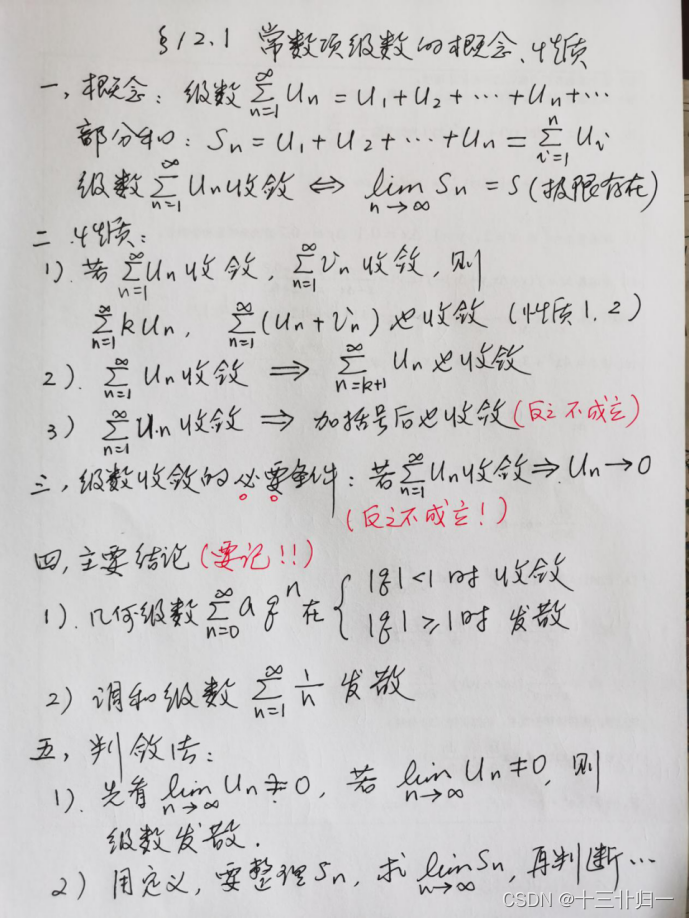 §12.1 常数项级数的概念、性质
一, 概念: 级数 ∑_{n=1}^{∞} Un = U1 + U2 + ⋯ + Un + ⋯
部分和: Sn = U1 + U2 + ⋯ + Un = ∑_{i=1}^{n} Ui
级数 ∑_{n=1}^{∞} Un 收敛 ⇔ lim_{n→∞} Sn = S (极限存在)
二. 性质:
1). 若 ∑_{n=1}^{∞} Un 收敛, ∑_{n=1}^{∞} Vn 收敛, 则
∑_{n=1}^{∞} kUn, ∑_{n=1}^{∞} (Un + Vn) 也收敛 (性质1.2)
2). ∑_{n=1}^{∞} Un 收敛 ⇒ ∑_{n=k+1}^{∞} Un 也收敛
3) ∑_{n=1}^{∞} Un 收敛 ⇒ 加括号后也收敛 (反之不成立)
三, 级数收敛的必要条件: 若 ∑_{n=1}^{∞} Un 收敛 ⇒ Un → 0
(反之不成立!)
四, 主要结论 (要记!!)
1). 几何级数 ∑_{n=0}^{∞} aq^n 在 { |q| < 1 时 收敛
|q| ≥ 1 时 发散
2) 调和级数 ∑_{n=1}^{∞} 1/n 发散
五, 判敛法:
1). 先看 lim_{n→∞} Un ≠ 0, 若 lim_{n→∞} Un ≠ 0, 则
级数发散.
2) 用定义, 要整理 Sn, 求 lim_{n→∞} Sn, 再判断⋯
CSDN @十三卝归一